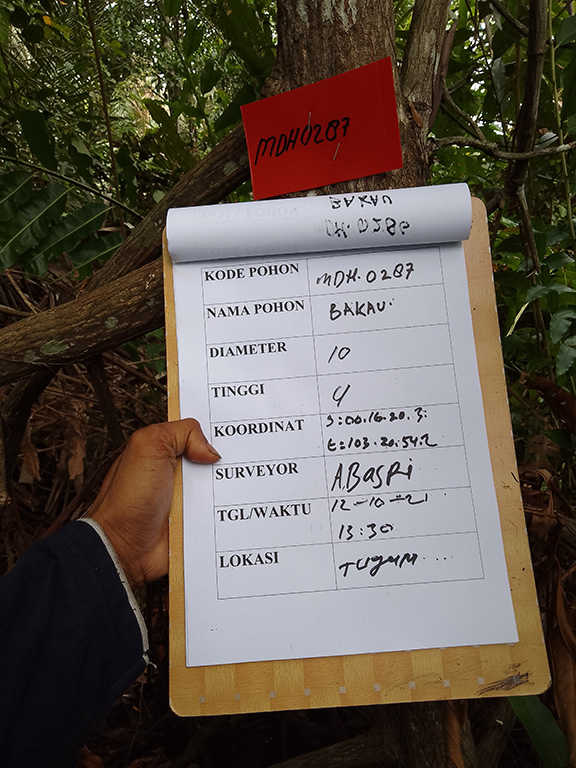 MDH0287
KODE POHON MDH.0287
NAMA POHON BAKAU
DIAMETER 10
TINGGI 4
KOORDINAT S:00.16.20.3:
E:103.20.54.2
SURVEYOR ABASRi
TGL/WAKTU 12-10-21
13:30
LOKASI